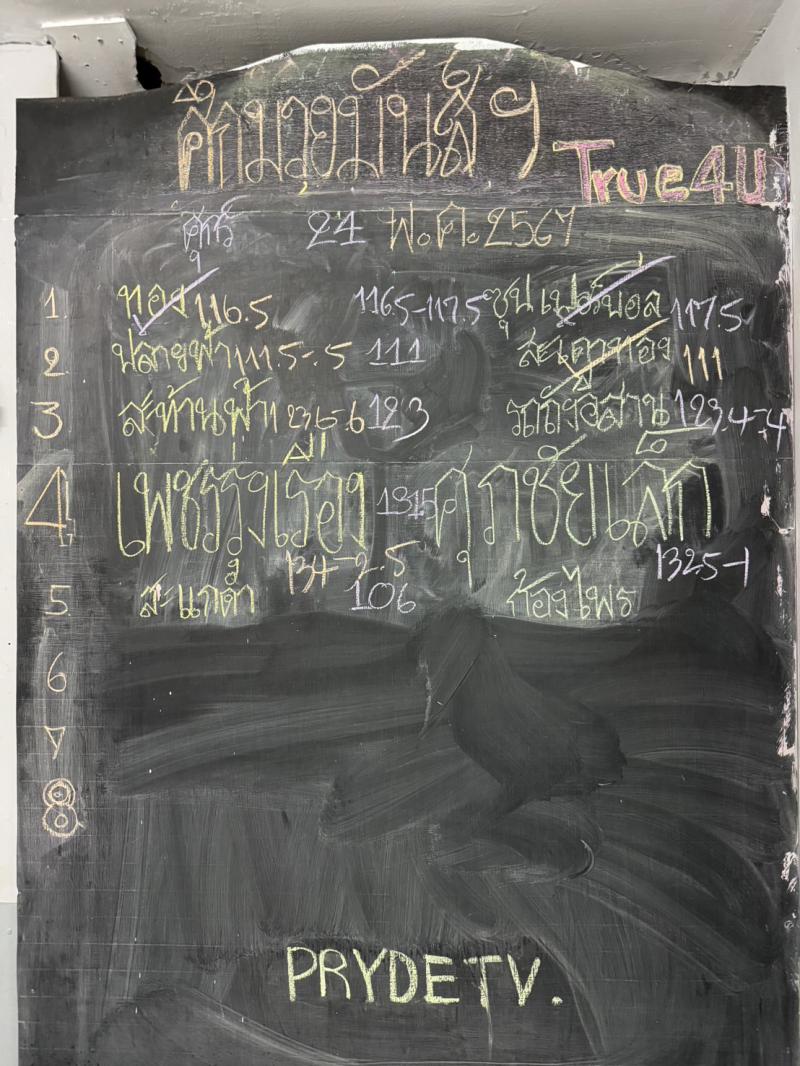 ศึกมวยมันส์ฯ True4U
ศุกร์ 24 พ.ค. 2567
1. ทอง 116.5 116.5-117.5 ซุปเปอร์บอล 117.5
2 ปลายฟ้า 111.5-.5 111 สะเดาทอง 111
3 สะท้านฟ้า 123.6-.6 123 รถถังอีสาน 123.4-.4
4 เพชรรุ่งเรือง 131.5 ศุภชัยเล็ก
134-2.5 132.5-1
5 สะแกดำ 106 ก้องไพร
6
7
8
PRYDETV.